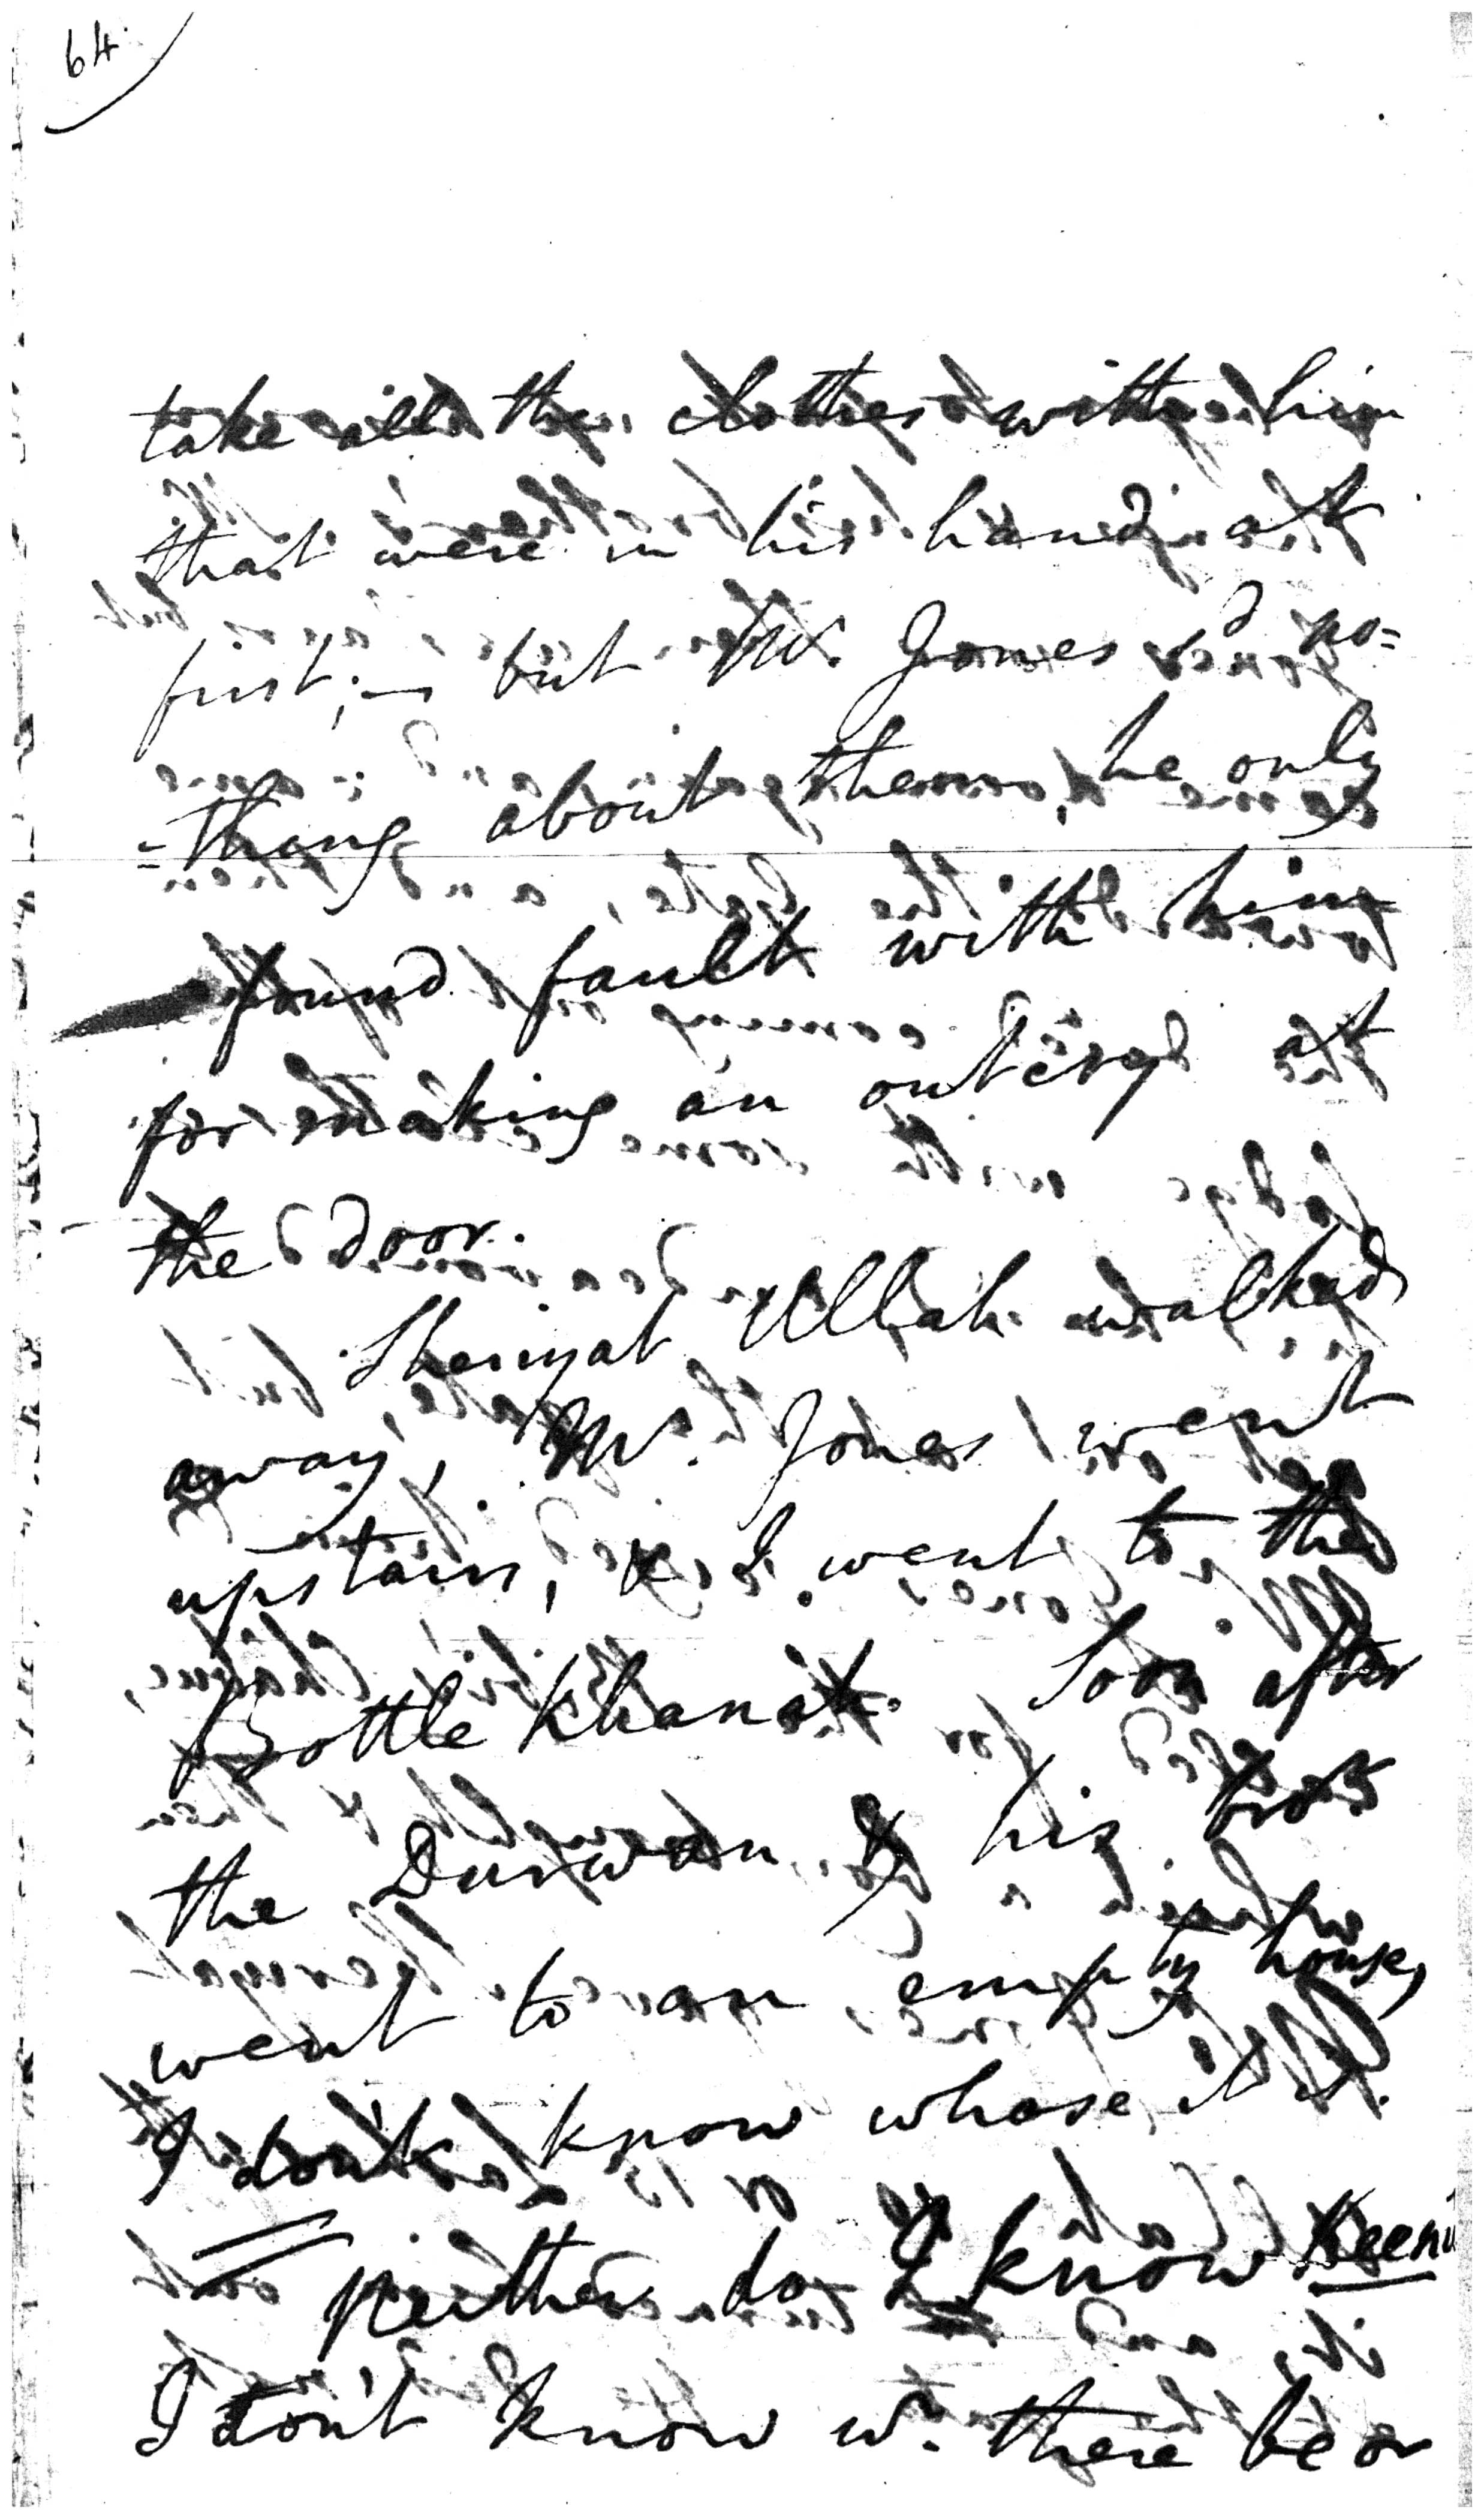 64.
take all the clothes with him
that were in his hand at
first; — but Mr. Jones sd no=
=thing about them, he only
found fault with him
for making an outcry at
the door.
Sheriyat Ullah walked
away, Mr. Jones went
upstairs, & I went to the
Bottle Khanah. Soon after
the Durwan & his
went to an empty house,
I don't know whose it is.
neither do I know
I don't know wr. there be or